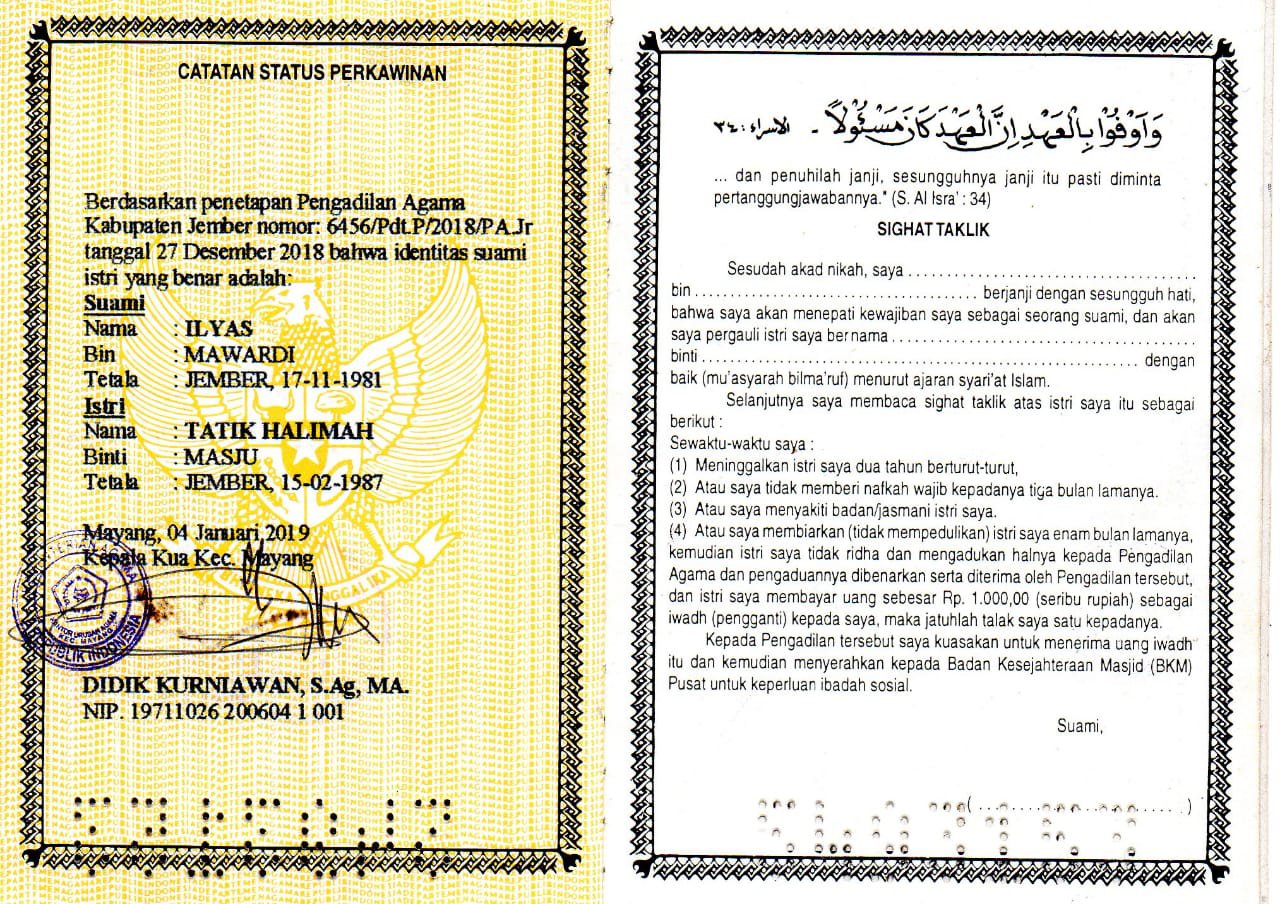 CATATAN STATUS PERKAWINAN
Berdasarkan penetapan Pengadilan Agama
Kabupaten Jember nomor: 6456/Pdt.P/2018/PA.Jr
tanggal 27 Desember 2018 bahwa identitas suami
istri yang benar adalah:
Suami
Nama : ILYAS
Bin : MAWARDI
Tetala : JEMBER, 17-11-1981
Istri
Nama : TATIK HALIMAH
Binti : MASJU
Tetala : JEMBER, 15-02-1987
Mayang, 04 Januari 2019
Kepala Kua Kec. Mayang
KANTOR URUSAN AGAMA
KEC. MAYANG
REPUBLIK INDONESIA
DIDIK KURNIAWAN, S.Ag, MA.
NIP. 19711026 200604 1 001
وَاَوْفُوْا بِالْعَهْدِ اِنَّ الْعَهْدَ كَانَ مَسْئُوْلاً - الاسراء : ٣٤
... dan penuhilah janji, sesungguhnya janji itu pasti diminta
pertanggungjawabannya." (S. Al Isra' : 34)
SIGHAT TAKLIK
Sesudah akad nikah, saya . . . . . . . . . . . . . . . . . . . . . . . . . . . . . . . . . . . . . . . .
bin . . . . . . . . . . . . . . . . . . . . . . . . . . . . . . . . . . . . . . . berjanji dengan sesungguh hati,
bahwa saya akan menepati kewajiban saya sebagai seorang suami, dan akan
saya pergauli istri saya bernama . . . . . . . . . . . . . . . . . . . . . . . . . . . . . . . . . . . . . . . . . .
binti . . . . . . . . . . . . . . . . . . . . . . . . . . . . . . . . . . . . . . . . . . . . . . . . . . . . . . . . . . . . dengan
baik (mu'asyarah bilma'ruf) menurut ajaran syari'at Islam.
Selanjutnya saya membaca sighat taklik atas istri saya itu sebagai
berikut :
Sewaktu-waktu saya :
(1) Meninggalkan istri saya dua tahun berturut-turut,
(2) Atau saya tidak memberi nafkah wajib kepadanya tiga bulan lamanya.
(3) Atau saya menyakiti badan/jasmani istri saya.
(4) Atau saya membiarkan (tidak mempedulikan) istri saya enam bulan lamanya,
kemudian istri saya tidak ridha dan mengadukan halnya kepada Pengadilan
Agama dan pengaduannya dibenarkan serta diterima oleh Pengadilan tersebut,
dan istri saya membayar uang sebesar Rp. 1.000,00 (seribu rupiah) sebagai
iwadh (pengganti) kepada saya, maka jatuhlah talak saya satu kepadanya.
Kepada Pengadilan tersebut saya kuasakan untuk menerima uang iwadh
itu dan kemudian menyerahkan kepada Badan Kesejahteraan Masjid (BKM)
Pusat untuk keperluan ibadah sosial.
Suami,
( . . . . . . . . . . . . . . . . . . . . . . . . . . . . . )